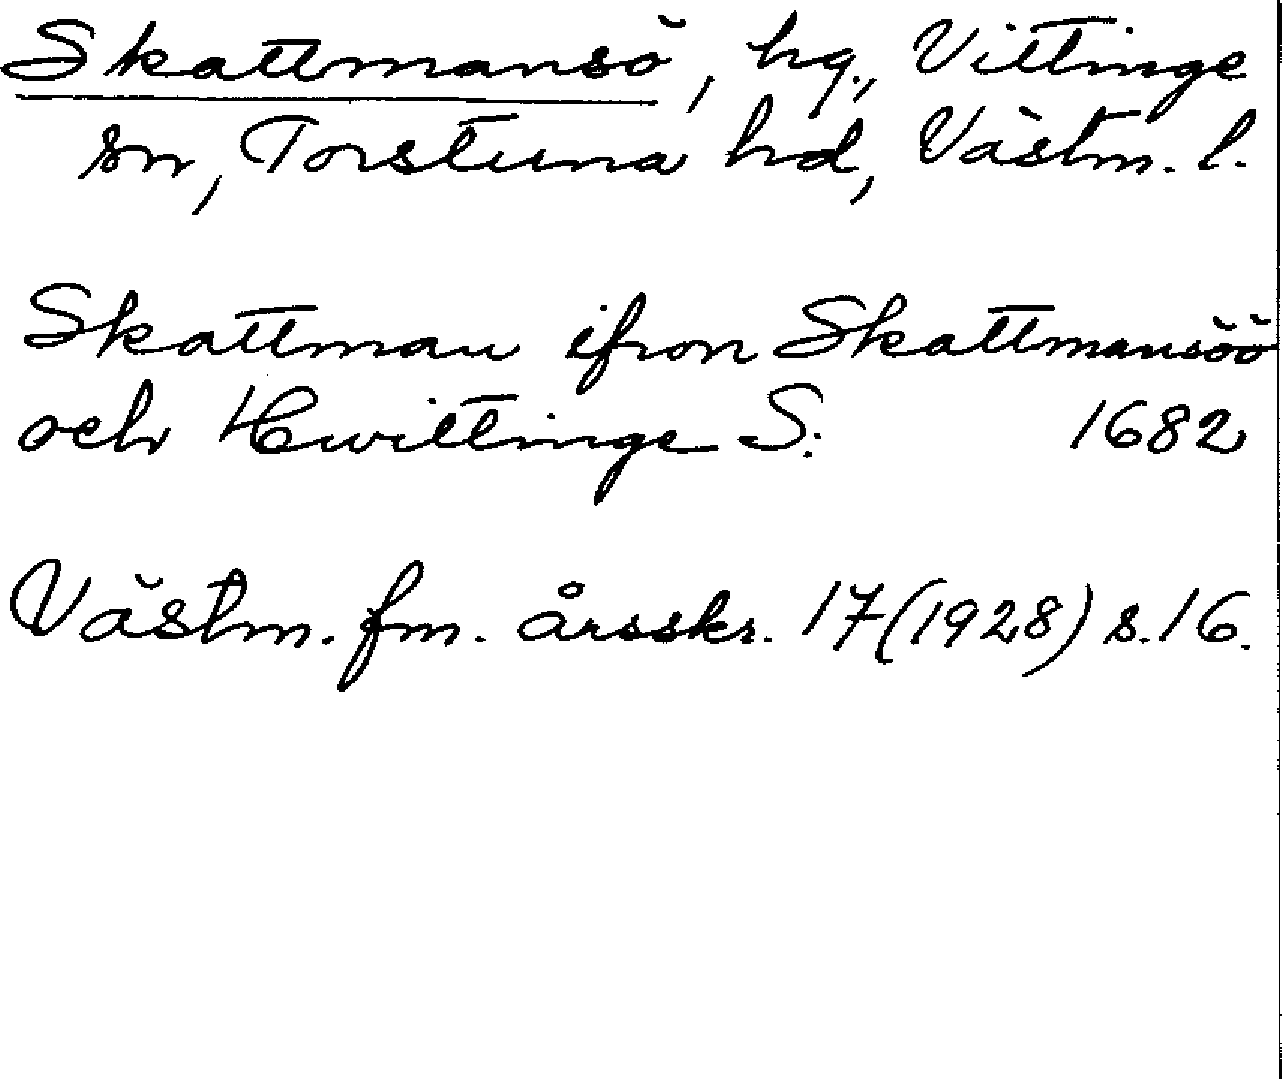 Skattmansö, hg., Vittinge
sn, Torstuna hd, Västm. l.
Skattman ifron Skattmansöö
och Hwittinge S: 1682
Västm. fm. årsskr. 17 (1928) s. 16.